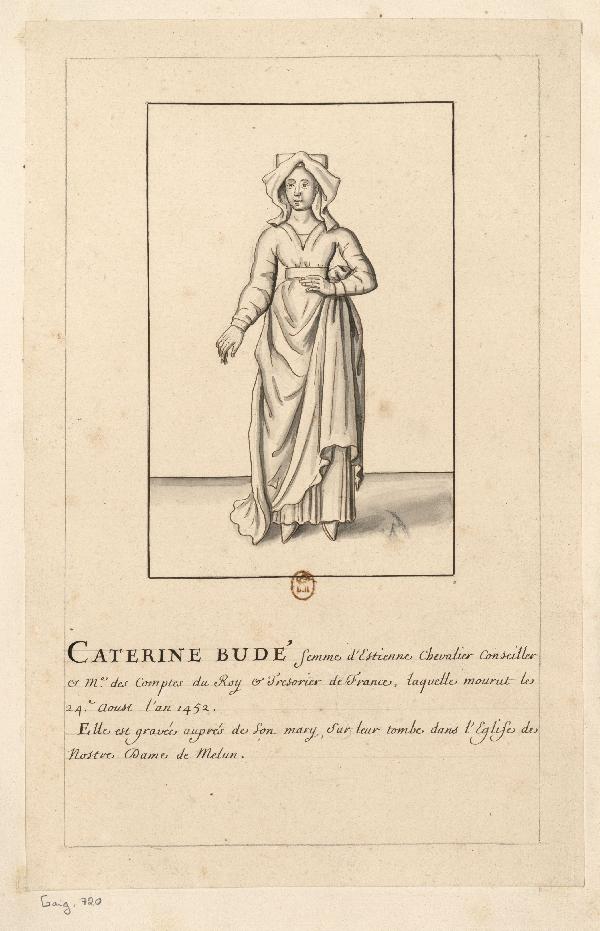 CATERINE BUDÉ femme d'Estienne Chevalier Conseiller
& M.e des Comptes du Roy & Tresorier de France, laquelle mourut le
24.e Aoust l'an 1452.
Elle est gravée auprés de son mary, sur leur tombe dans l'Eglise de
Nostre Dame de Melun.
Gaig. 720